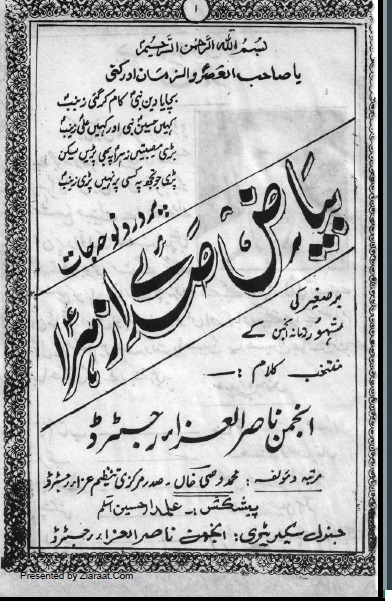 ۱
بسم اللہ الرحمٰن الرحیم
یا صاحب العصر والزمان ادرکنی
بچایا دین نبیؐ کام کر گئی زینبؑ
کہیں حسینؑ بنی اور کہیں علیؑ زینبؑ
بڑی مصیبتیں زہراؑ پہ بھی پڑیں لیکن
پڑی جو تجھ پہ کسی پر نہیں پڑی زینبؑ
پردرد نوحہ جات
بیاض صدائے زہراؑ
برصغیر کی
مشہور زمانہ انجمن کے
منتخب کلام :—
انجمن ناصر العزاء رجسٹرڈ
مرتبہ و مؤلفہ : محمد وصی خاں ۔ صدر مرکزی تنظیم عزاء رجسٹرڈ
پیشکش :۔ علمدار حسین اسلم
جنرل سیکریٹری : انجمن ناصر العزاء رجسٹرڈ
Presented by Ziaraat.Com